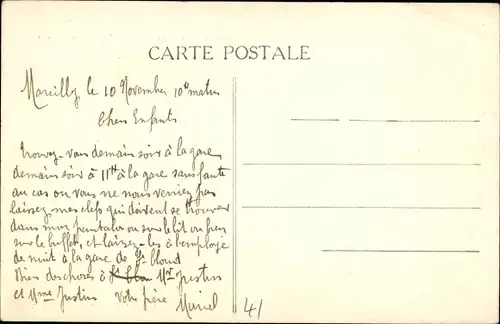 CARTE POSTALE
Marcilly le 10 Novembre 10h matin
Chers Enfants
trouvez-vous demain soir à la gare
demain soir à 11h à la gare sans faute
au cas ou vous ne nous verriez pas
laissez mes clefs qui doivent se trouver
dans mon pantalon ou sur le lit ou bien
sur le buffet, et laissez-les à l'employé
de nuit à la gare de St Cloud
Bien des choses à Mr Justin
et Mme Justin votre frère
41